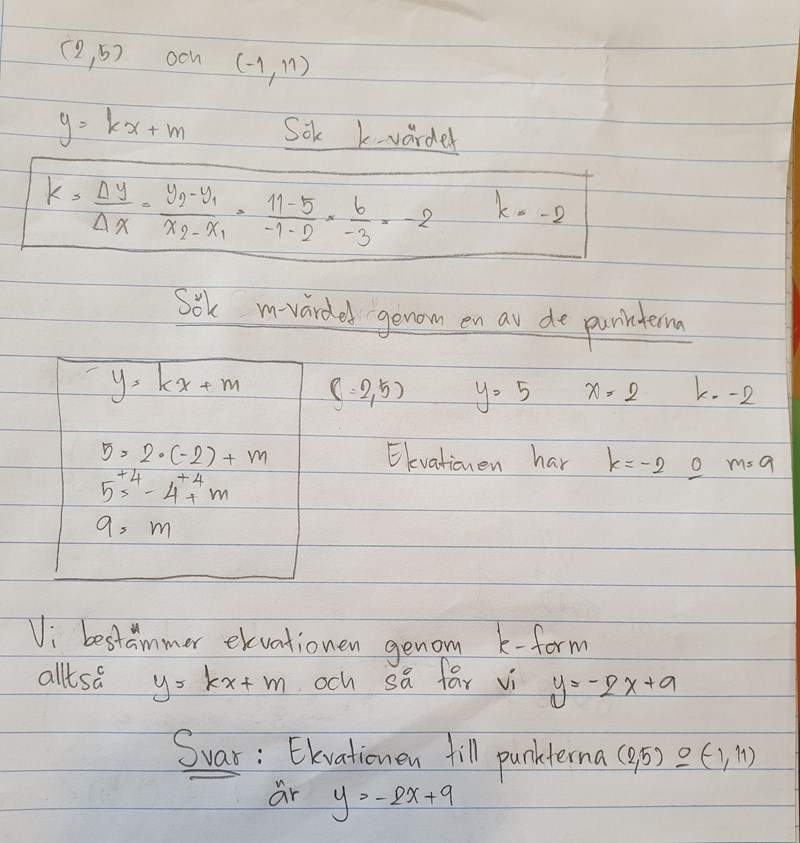 (2,5) och (-1, 11)
y = kx + m Sök k-värdet
k = Δy/Δx = y₂-y₁/x₂-x₁ = 11-5/-1-2 = 6/-3 = -2 k = -2
Sök m-värdet genom en av de punkterna
y = kx + m (2,5) y = 5 x = 2 k = -2
5 = 2·(-2) + m Ekvationen har k = -2 o m = 9
+4 +4
5 = -4 + m
9 = m
Vi bestämmer ekvationen genom k-form
alltså y = kx + m och så får vi y = -2x+9
Svar: Ekvationen till punkterna (2,5) o (-1, 11)
är y = -2x+9